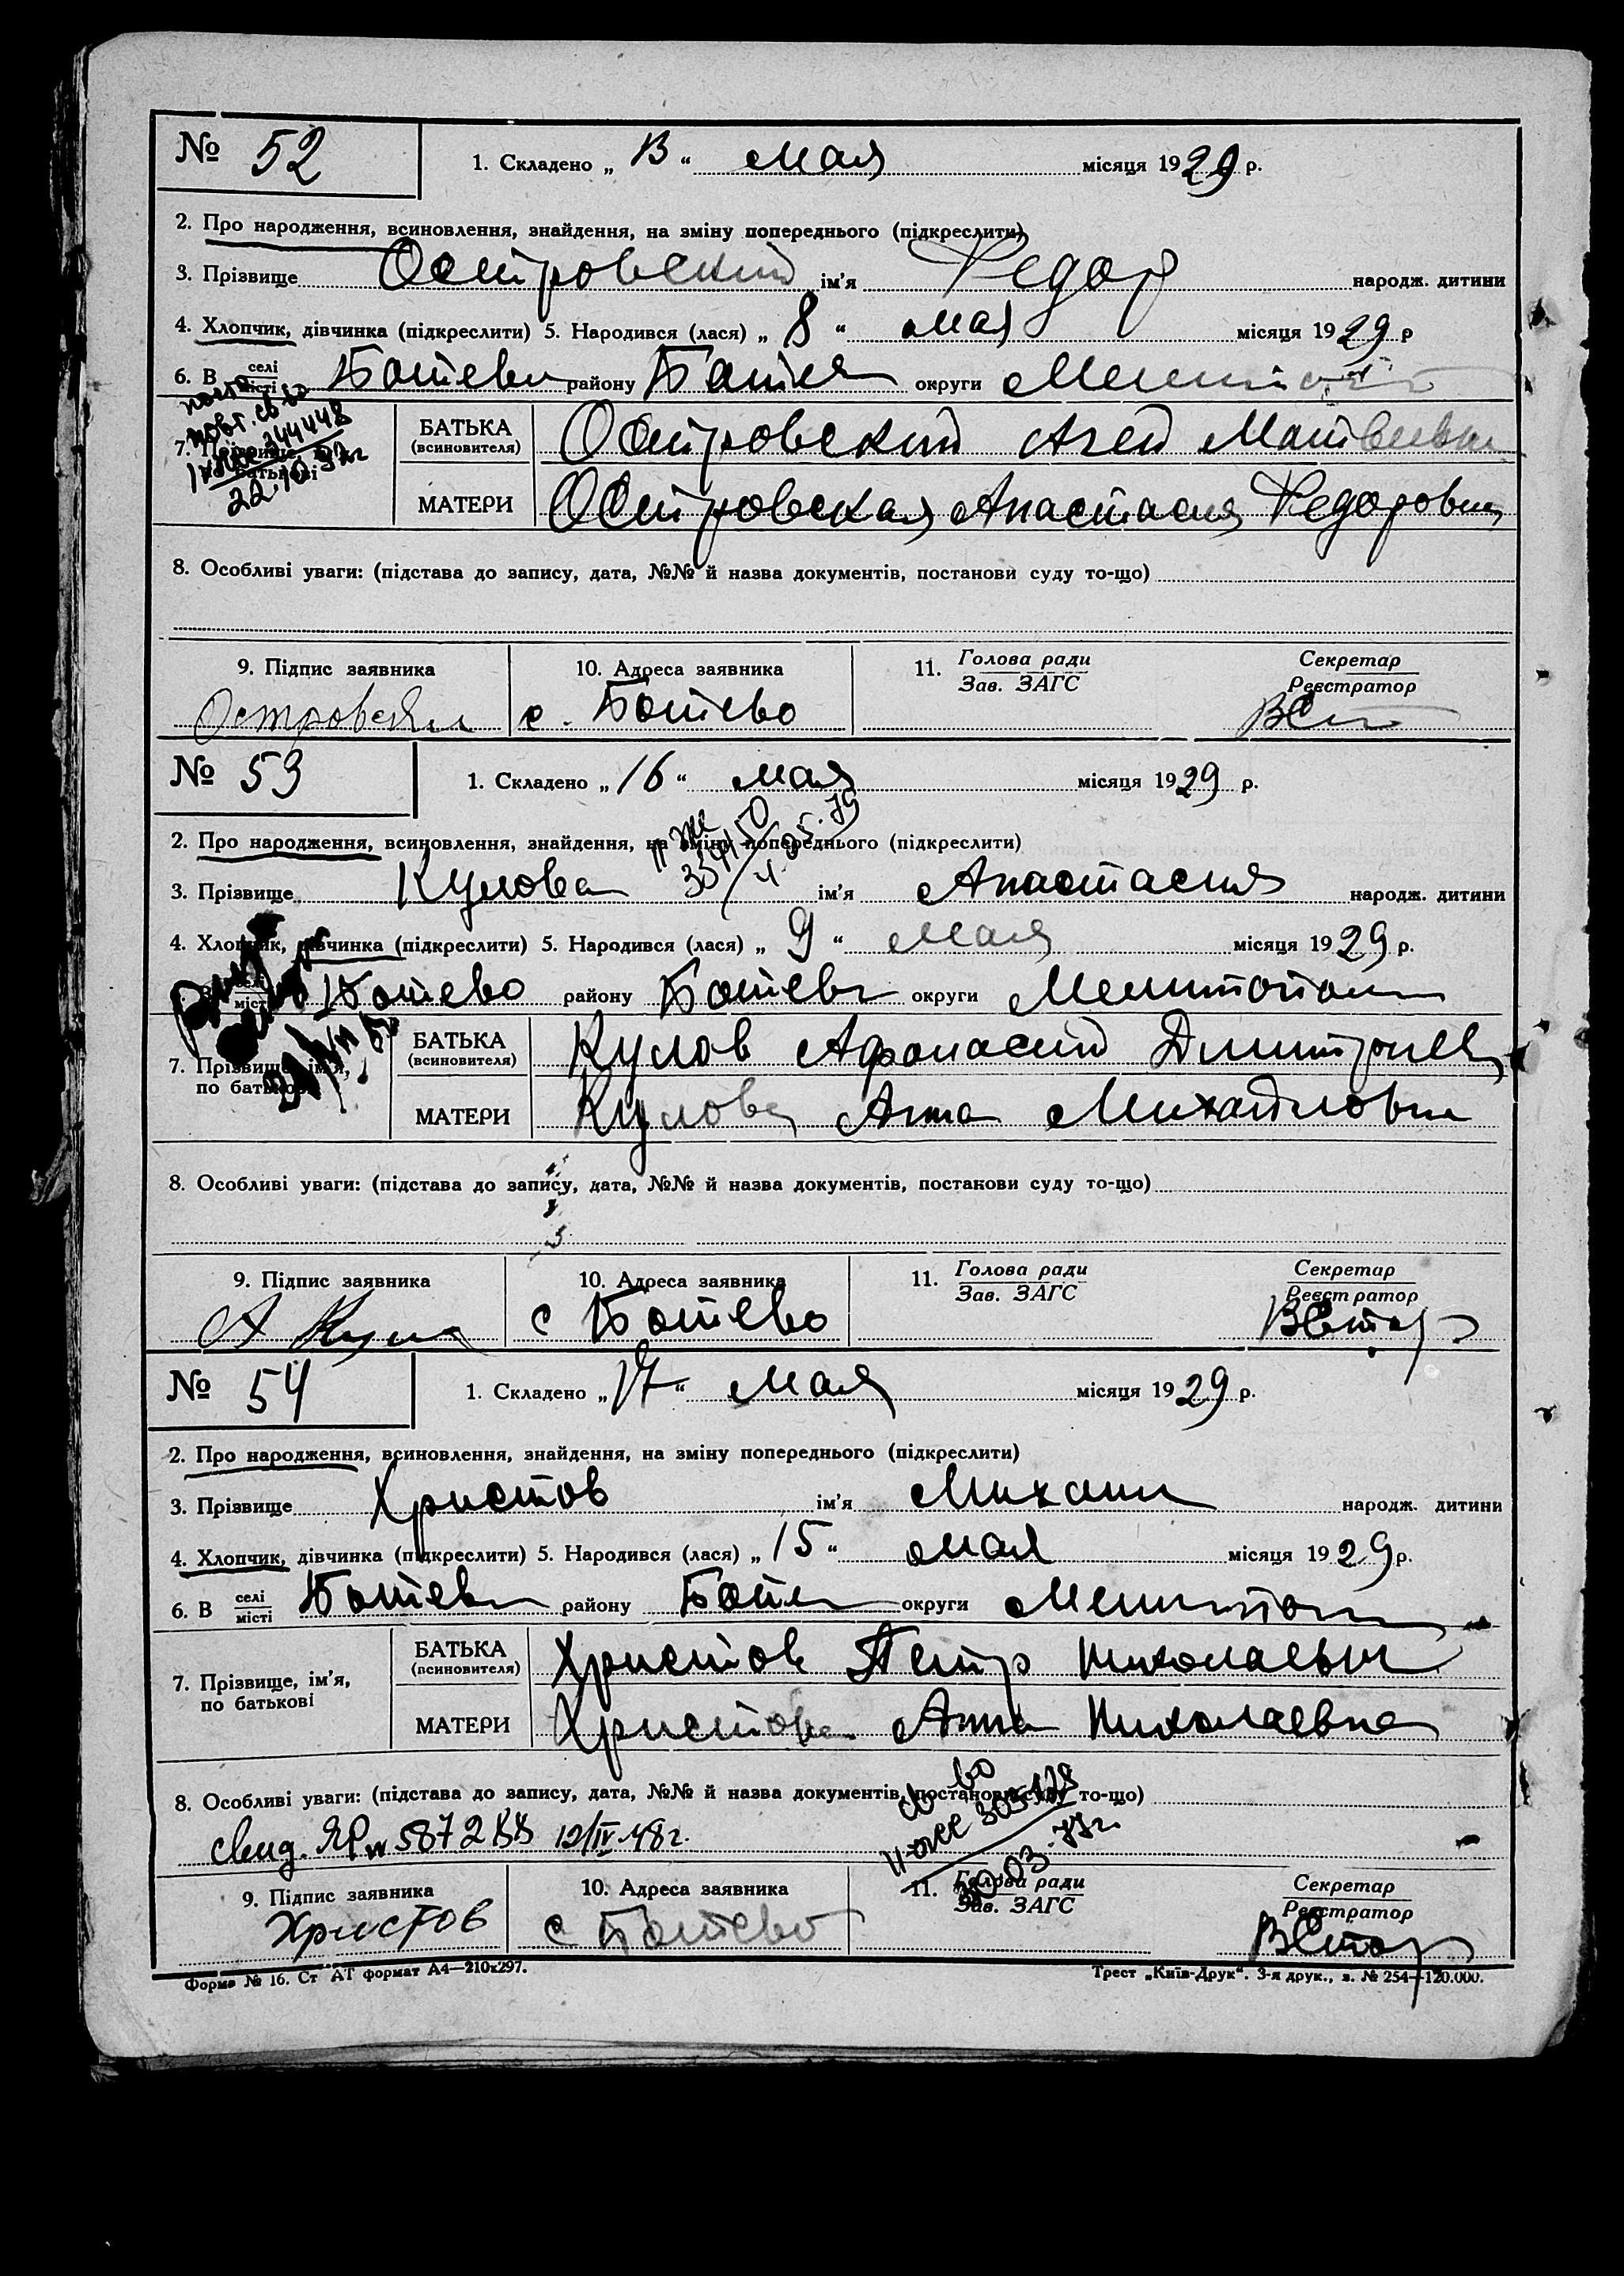 № 52
1. Складено „ 13 “ мая місяця 1929 р.
2. Про народження, всиновлення, знайдення, на зміну попереднього (підкреслити)
3. Прізвище Островский ім'я Федор народж. дитини
4. Хлопчик, дівчинка (підкреслити) 5. Народився (лася) „ 8 “ мая місяця 1929 р
6. В селі місті Ботеви району Ботев округи
22.10.
7. БАТЬКА (всиновителя) Островский Агей Матвеевич
МАТЕРИ Островская Анастасия Федоровна
8. Особливі уваги: (підстава до запису, дата, №№ й назва документів, постанови суду то-що)
9. Підпис заявника 10. Адреса заявника 11. Голова ради Зав. ЗАГС Секретар Реєстратор
Островский с. Ботево
№ 53
1. Складено „ 16 “ мая місяця 1929 р.
2. Про народження, всиновлення, знайдення, на зміну попереднього (підкреслити)
3. Прізвище Кулова ім'я Анастасия народж. дитини
4. Хлопчик, дівчинка (підкреслити) 5. Народився (лася) „ 9 “ мая місяця 1929 р.
селі місті Ботево району Ботев округи Мелитопол
7. Прізвище, ім'я, по батькові БАТЬКА (всиновителя) Кулов Афонасий Дмитриев
МАТЕРИ Кулова Анна Михайловна
8. Особливі уваги: (підстава до запису, дата, №№ й назва документів, постанови суду то-що)
9. Підпис заявника 10. Адреса заявника 11. Голова ради Зав. ЗАГС Секретар Реєстратор
А Кулов с Ботево
№ 54
1. Складено „ 17 “ мая місяця 1929 р.
2. Про народження, всиновлення, знайдення, на зміну попереднього (підкреслити)
3. Прізвище Христов ім'я Михаил народж. дитини
4. Хлопчик, дівчинка (підкреслити) 5. Народився (лася) „ 15 “ мая місяця 1929 р.
6. В селі місті Ботев району Ботев округи Мелитопол
7. Прізвище, ім'я, по батькові БАТЬКА (всиновителя) Христов Петр Николаевич
МАТЕРИ Христова Анна Николаевна
8. Особливі уваги: (підстава до запису, дата, №№ й назва документів, постанови суду то-що)
свид. ЯР № 587288 12/IV-48 г.
9. Підпис заявника 10. Адреса заявника 11. Голова ради Зав. ЗАГС Секретар Реєстратор
Христов с Ботево
Форма № 16. Ст АТ формат А4—210х297.
Трест „Київ-Друк“. 3-я друк., з. № 254—120.000.